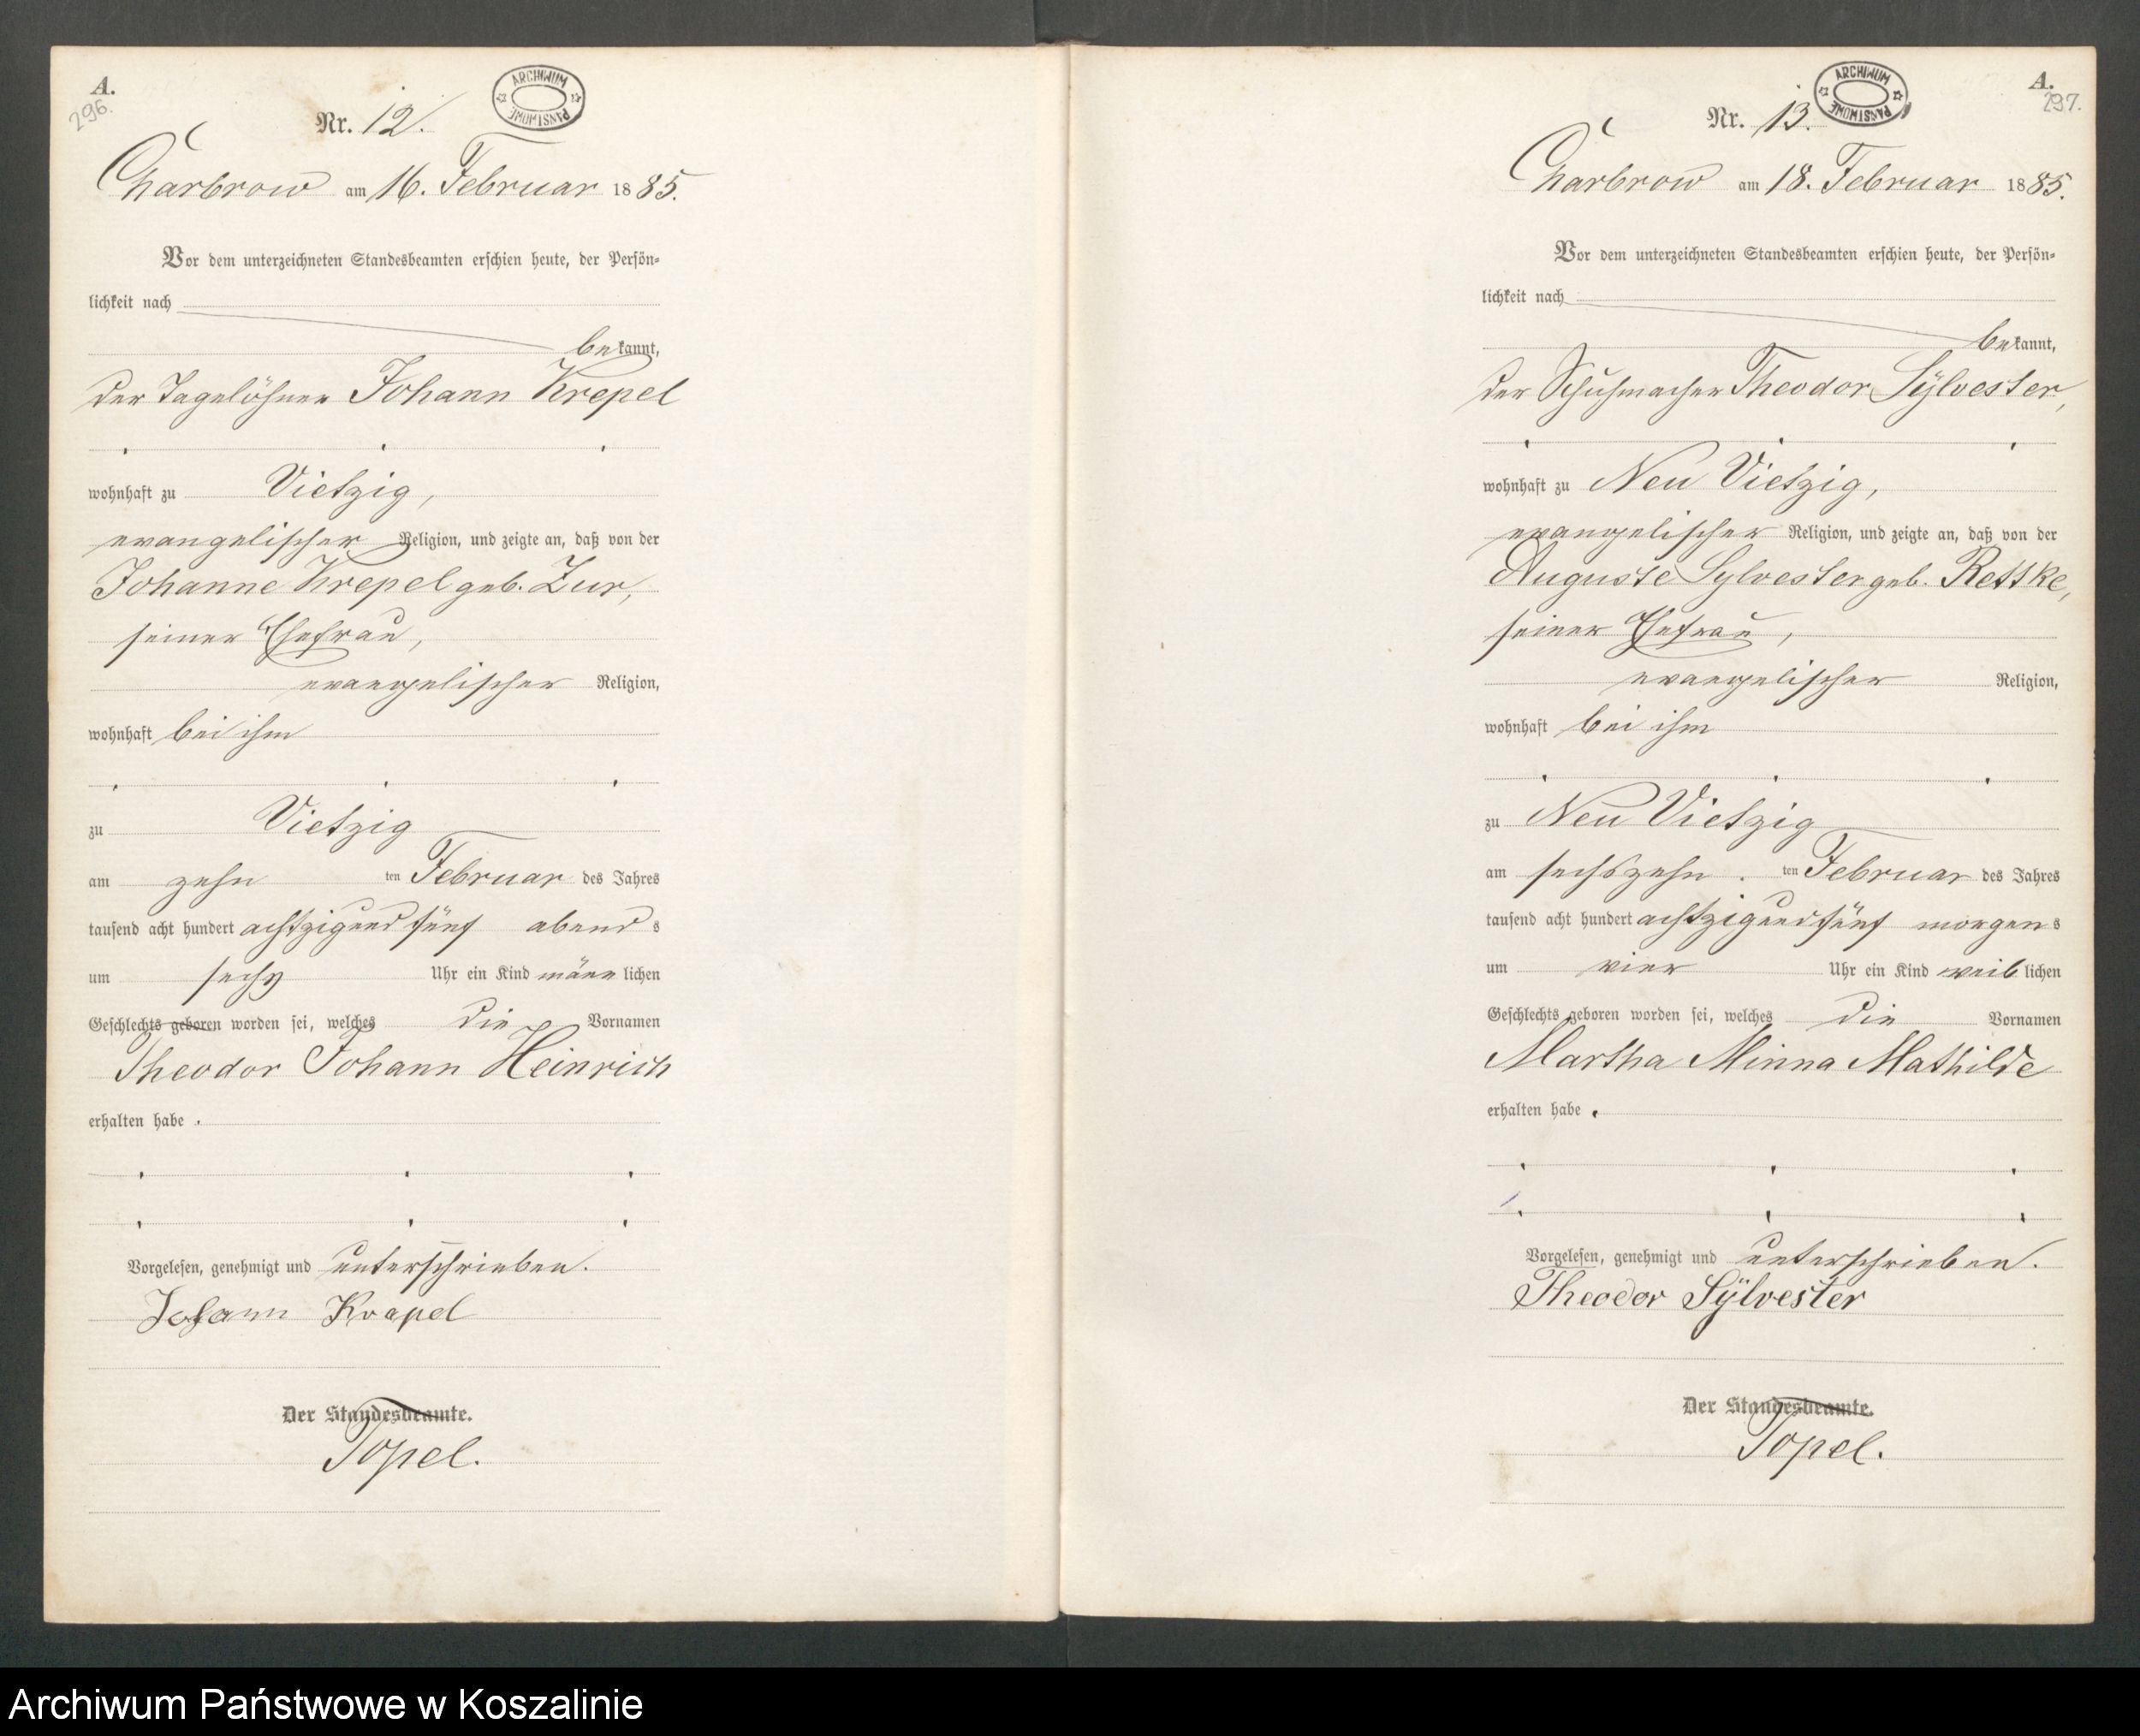 A.
296.
ARCHIWUM PAŃSTWOWE
Nr. 12.
Charbrow am 16. Februar 1885.
Vor dem unterzeichneten Standesbeamten erschien heute, der Persön-
lichkeit nach
bekannt,
der Tagelöhner Johann Krepel
wohnhaft zu Vietzig,
evangelischer Religion, und zeigte an, daß von der
Johanne Krepel geb. Zur,
seiner Ehefrau,
evangelischer Religion,
wohnhaft bei ihm
zu Vietzig
am zehn ten Februar des Jahres
tausend acht hundert achtzig und fünf abends
um sechs Uhr ein Kind männlichen
Geschlechts geboren worden sei, welches die Vornamen
Theodor Johann Heinrich
erhalten habe.
Vorgelesen, genehmigt und unterschrieben.
Johann Krapel
Der Standesbeamte.
Topel.
A.
297.
ARCHIWUM PAŃSTWOWE
Nr. 13.
Charbrow am 18. Februar 1885.
Vor dem unterzeichneten Standesbeamten erschien heute, der Persön-
lichkeit nach
bekannt,
der Schuhmacher Theodor Sÿlvester,
wohnhaft zu Neu Vietzig,
evangelischer Religion, und zeigte an, daß von der
Auguste Sylvester geb. Rettke,
seiner Ehefrau,
evangelischer Religion,
wohnhaft bei ihm
zu Neu Vietzig
am sechszehn ten Februar des Jahres
tausend acht hundert achtzig und fünf morgens
um vier Uhr ein Kind weiblichen
Geschlechts geboren worden sei, welches die Vornamen
Martha Minna Mathilde
erhalten habe.
Vorgelesen, genehmigt und unterschrieben.
Theodor Sÿlvester
Der Standesbeamte.
Topel.
Archiwum Państwowe w Koszalinie